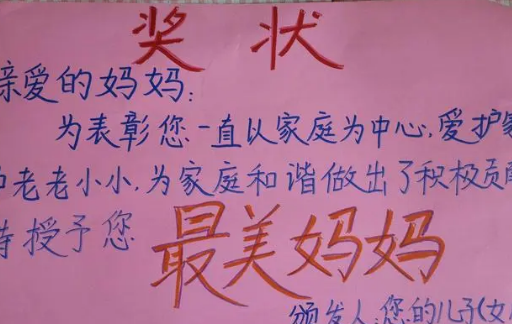 奖状
亲爱的妈妈:
为表彰您一直以家庭为中心,爱护家
老老小小,为家庭和谐做出了积极贡献
特授予您
最美妈妈
颁发人:您的儿子(女